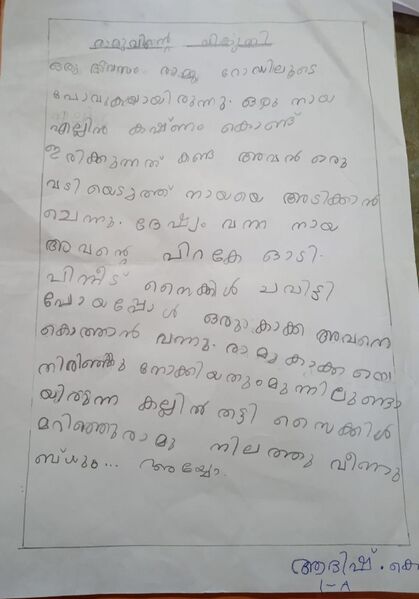 രാമുവിന്റെ വികൃതി
ഒരു ദിവസം രാമു റോഡിലൂടെ
പോവുകയായിരുന്നു. ഒരു നായ
എല്ലിൻ കഷ്ണം കൊണ്ട്
ഇരിക്കുന്നത് കണ്ട അവൻ ഒരു
വടിയെടുത്ത് നായയെ അടിക്കാൻ
ചെന്നു. ദേഷ്യം വന്ന നായ
അവന്റെ പിറകേ ഓടി.
പിന്നീട് സൈക്കിൾ ചവിട്ടി
പോയപ്പോൾ ഒരു കാക്ക അവനെ
കൊത്താൻ വന്നു. രാമു കാക്കയെ
തിരിഞ്ഞു നോക്കിയതും മുന്നിലുണ്ടാ
യിരുന്ന കല്ലിൽ തട്ടി സൈക്കിൾ
മറിഞ്ഞു രാമു നിലത്തു വീണു
ബ്ധും... അയ്യോ.
ആദിഷ്. കെ
1-A